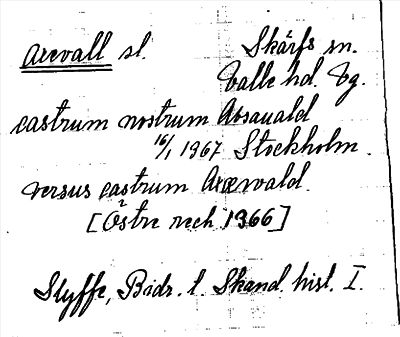 Axevall sl. Skärfs sn.
Valle hd. Vg.
castrum nostrum Axauald
16/1 1367 Stockholm.
versus castrum Axewald.
[Östre rech 1366]
Styffe, Bidr. t. Skand. hist. I.